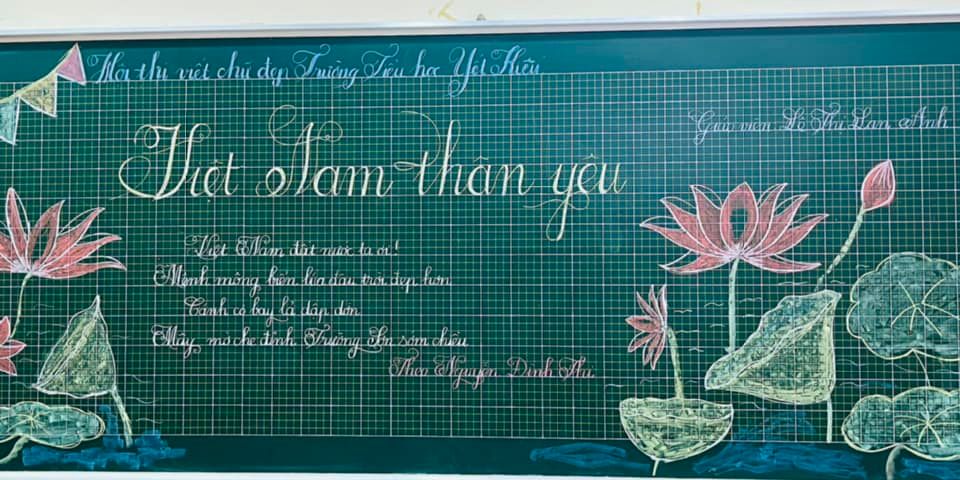 Hội thi viết chữ đẹp Trường Tiểu học Yết Kiêu
Giáo viên Lê Thị Lan Anh
Việt Nam thân yêu
Việt Nam đất nước ta ơi!
Mênh mông biển lúa đâu trời đẹp hơn
Cánh cò bay lả dập dờn
Mây mờ che đỉnh Trường Sơn sớm chiều
Theo Nguyễn Đình Thi